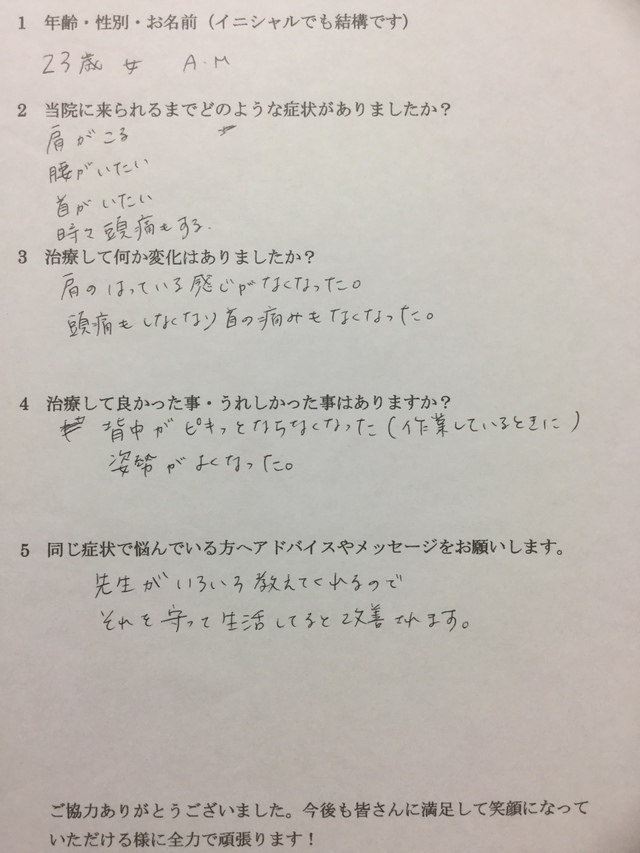 1 年齢・性別・お名前（イニシャルでも結構です）
23歳 女 A.M
2 当院に来られるまでどのような症状がありましたか？
肩がこる
腰がいたい
首がいたい
時々頭痛もする.
3 治療して何か変化はありましたか？
肩のはっている感じがなくなった。
頭痛もしなくなり首の痛みもなくなった。
4 治療して良かった事・うれしかった事はありますか？
背中がピキっとならなくなった(作業しているときに)
姿勢がよくなった。
5 同じ症状で悩んでいる方へアドバイスやメッセージをお願いします。
先生がいろいろ教えてくれるので
それを守って生活してると改善されます。
ご協力ありがとうございました。今後も皆さんに満足して笑顔になって
いただける様に全力で頑張ります！